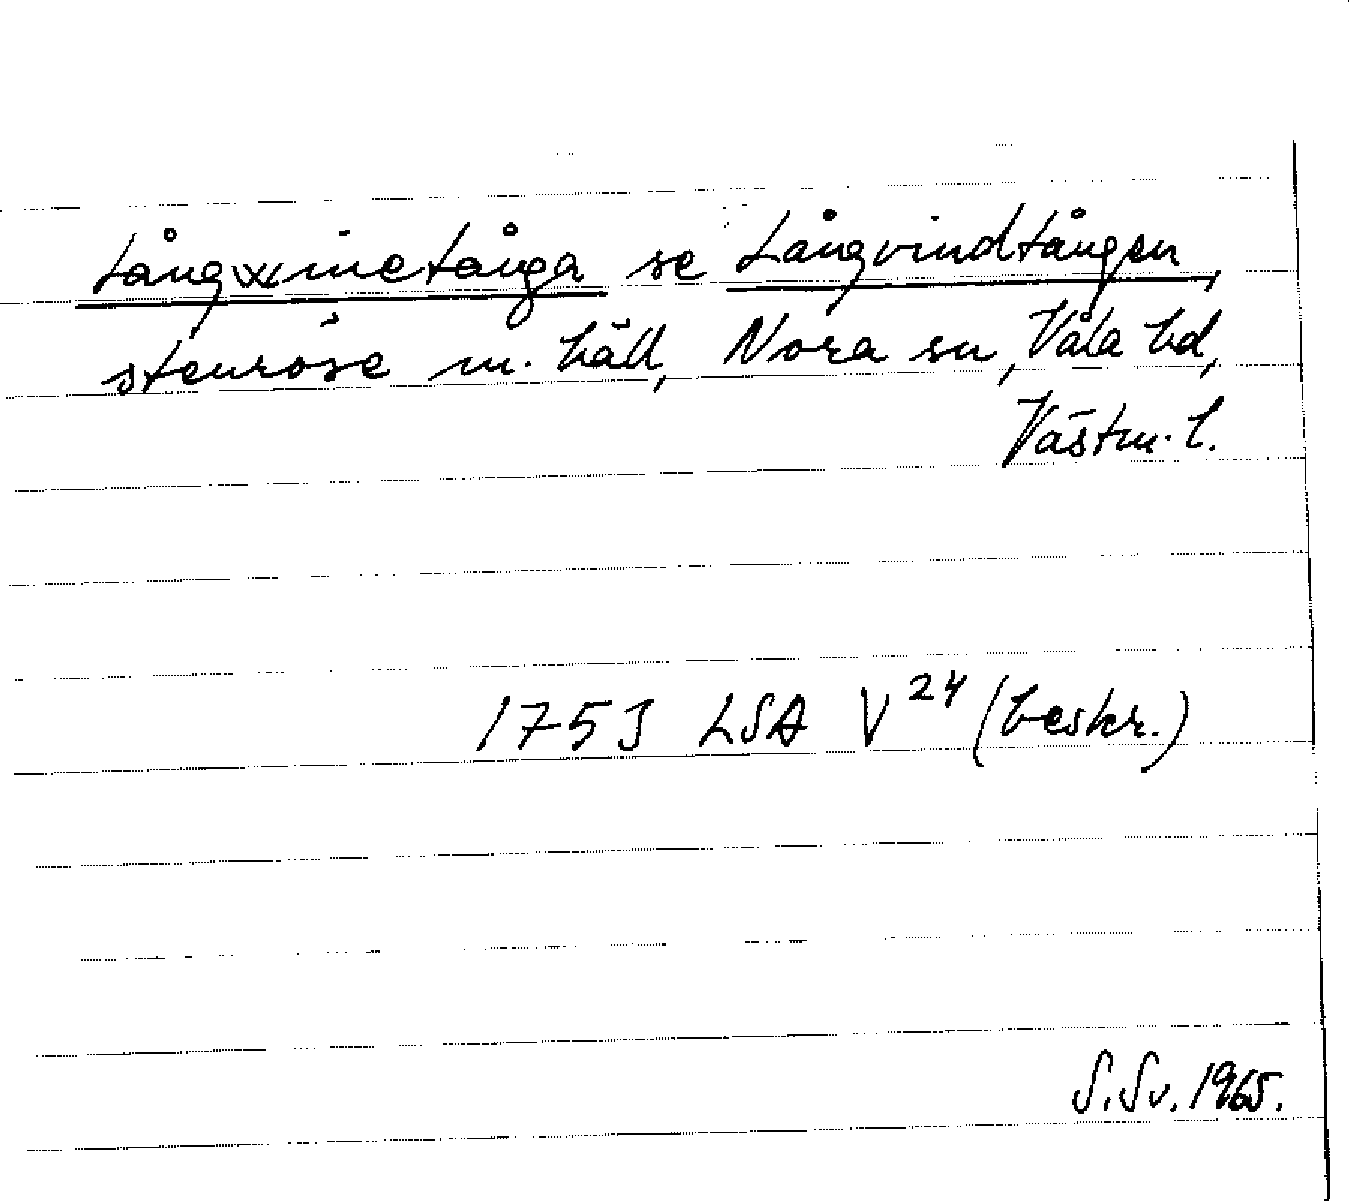 Långwinetånga se Långvindtången,
stenröse m. häll, Nora sn, Våla hd,
Västm. l.
1753 LSA V 24 (beskr.)
S. Sv. 1965.